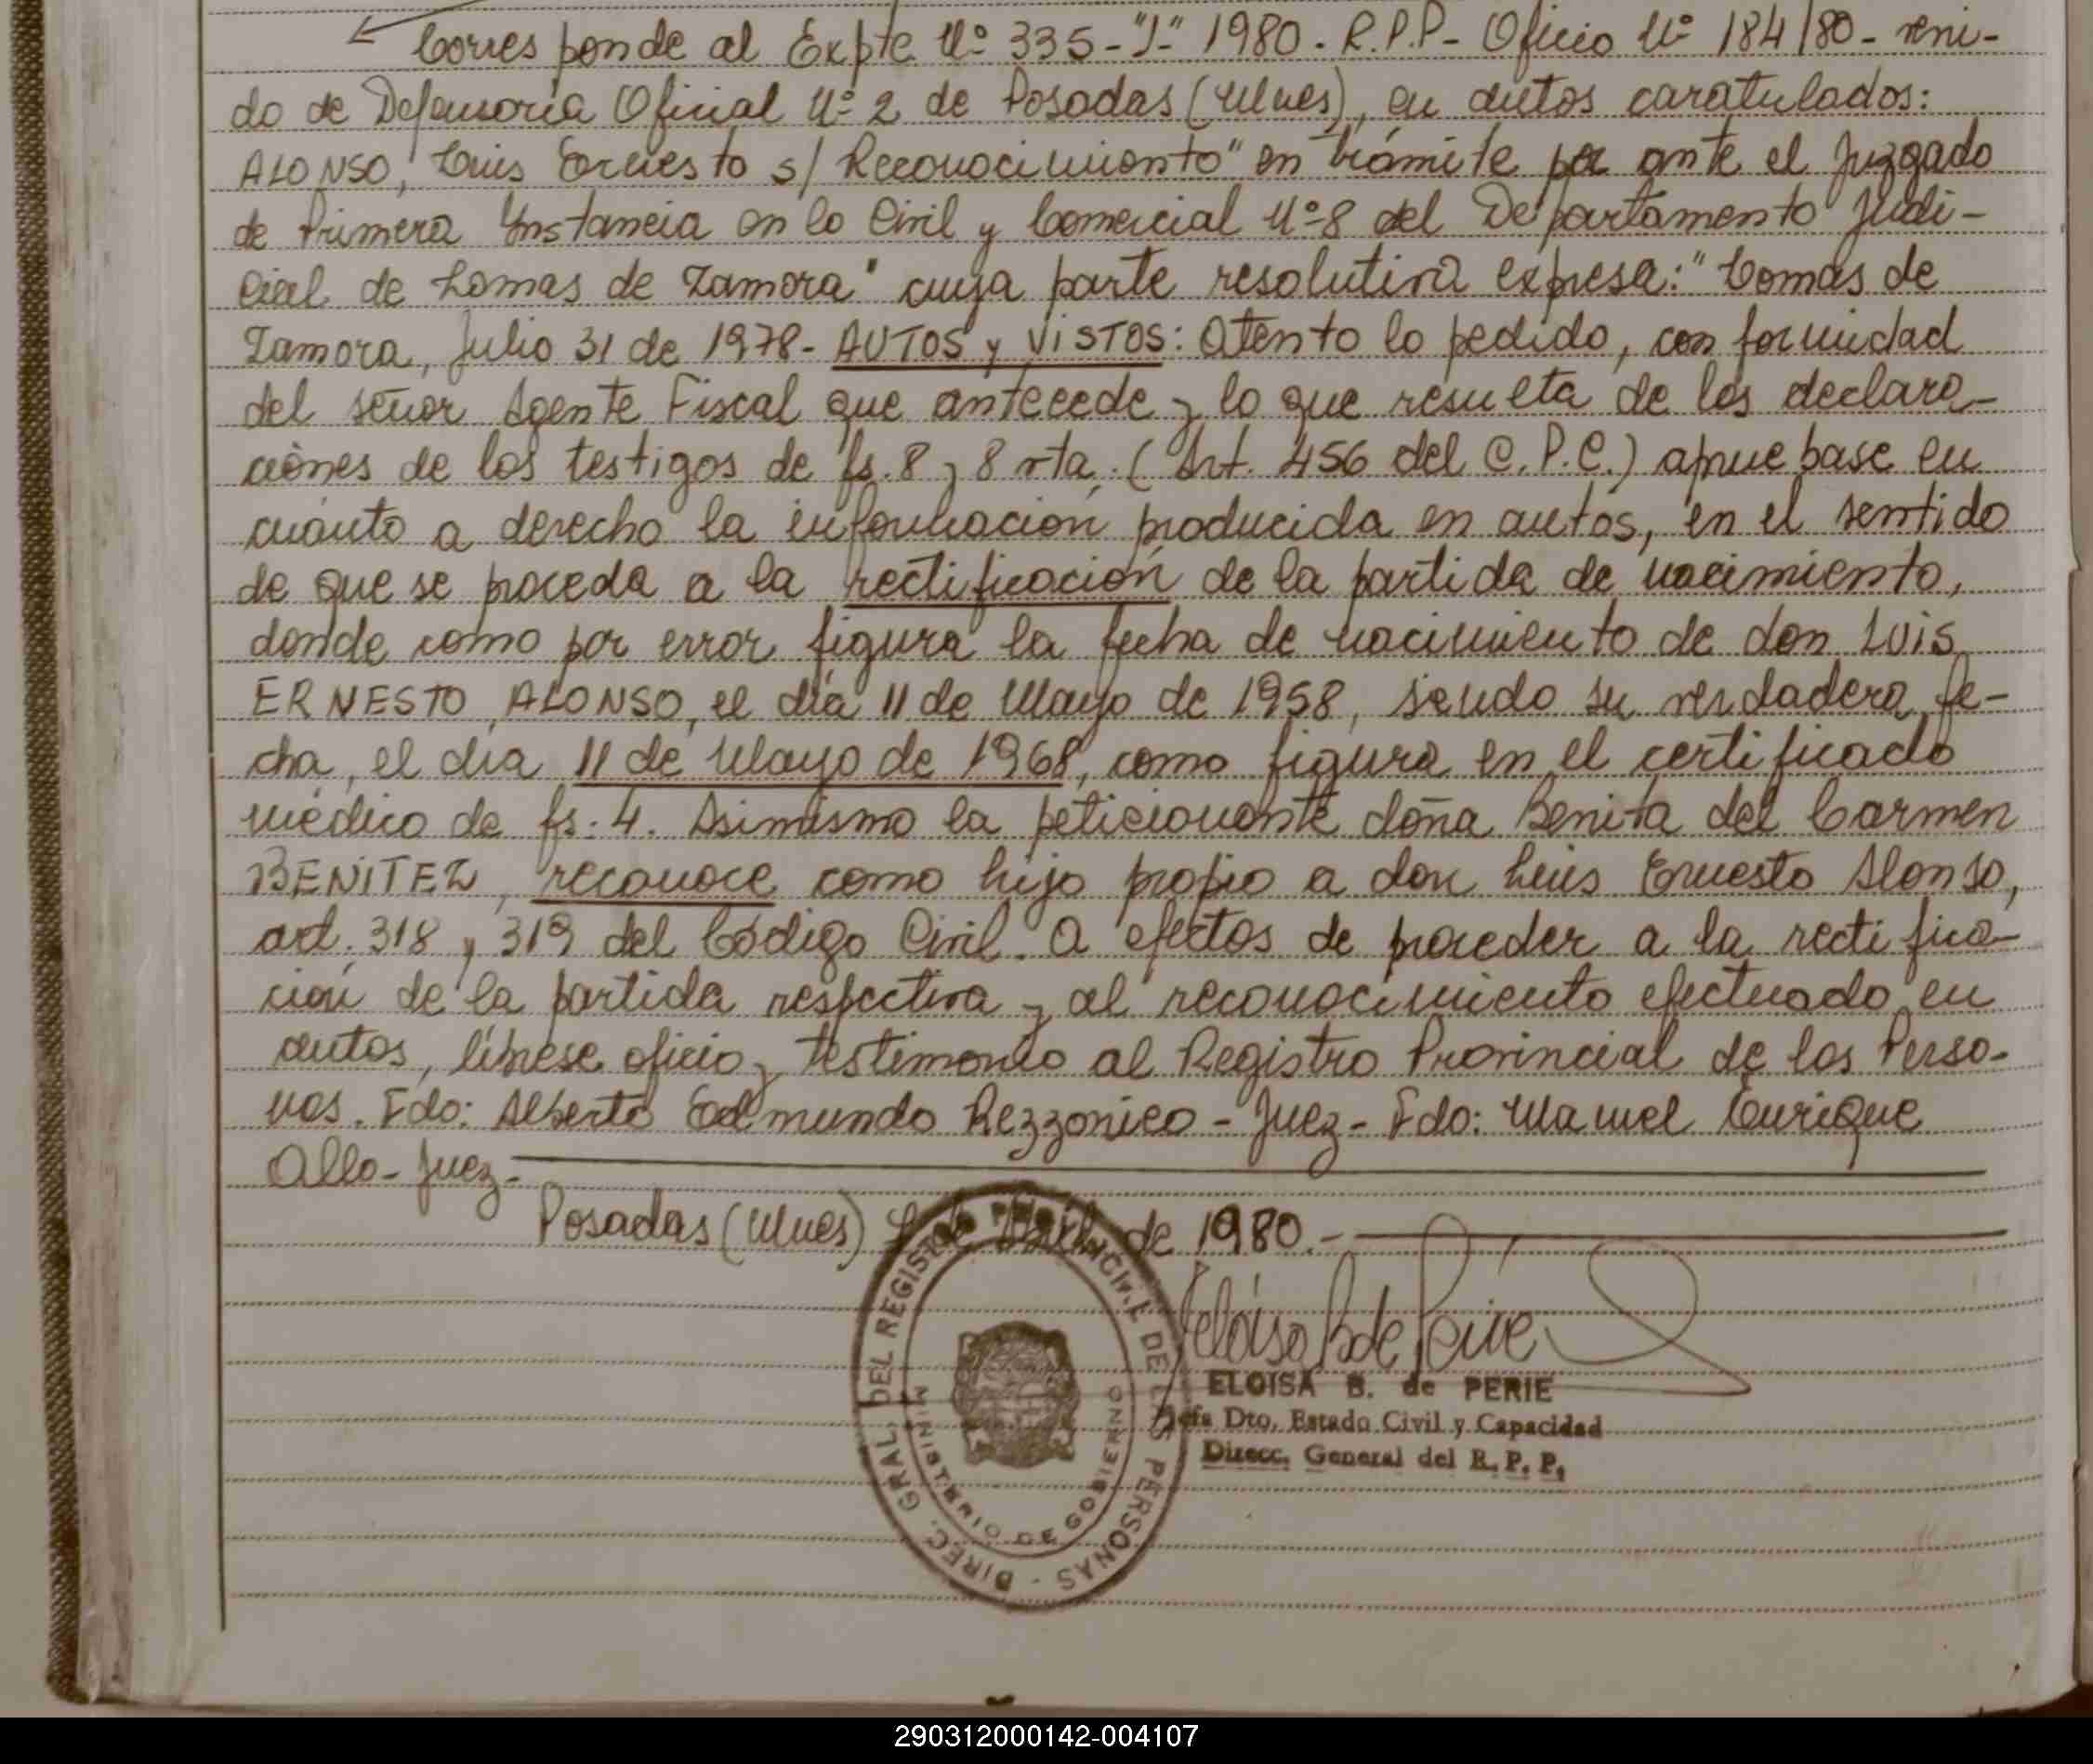 Corresponde al Expte Nº 335-"J"- 1980. R.P.P- Oficio Nº 184/80- veni-
do de Defensoría Oficial Nº 2 de Posadas (Mnes), en autos caratulados:
ALONSO, Luis Ernesto s/ Reconocimiento" en trámite por ante el Juzgado
de Primera Instancia en lo Civil y Comercial Nº 8 del Departamento Judi-
cial de Lomas de Zamora" cuya parte resolutiva expresa: "Lomas de
Zamora, Julio 31 de 1978- AUTOS y VISTOS: Atento lo pedido, conformidad
del señor Agente Fiscal que antecede y lo que resulta de las declara-
ciones de los testigos de fs. 8 y 8 vta. (Art. 456 del C.P.C.) apruebase en
cuánto a derecho la información producida en autos, en el sentido
de que se proceda a la rectificación de la partida de nacimiento,
donde como por error figura la fecha de nacimiento de don LUIS
ERNESTO ALONSO, el día 11 de Mayo de 1958, siendo su verdadera fe-
cha, el día 11 de Mayo de 1968, como figura en el certificado
médico de fs. 4. Asimismo la peticionante doña Benita del Carmen
BENITEZ, reconoce como hijo propio a don Luis Ernesto Alonso,
art. 318 y 319 del Código Civil. A efectos de proceder a la rectifica-
ción de la partida respectiva y al reconocimiento efectuado en
autos, líbrese oficio y testimonio al Registro Provincial de las Perso-
nas. Fdo: Alberto Edmundo Rezzonico - Juez- Fdo: Manuel Enrique
Allo- Juez.-
Posadas (Mnes) de Abril de 1980.-
Eloísa B de Perie
ELOISA B. de PERIE
Jefa Dto. Estado Civil y Capacidad
Direcc. General del R. P. P.
DIREC. GRAL. DEL REGISTRO PROVINCIAL DE LAS PERSONAS -
MINISTERIO DE GOBIERNO
290312000142-004107